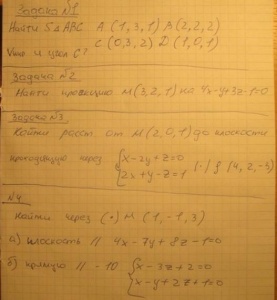 Задача №1
Найти S ΔABC A(1,3,1) B(2,2,2)
C(0,3,2) D(1,0,1)
и угол C?
Задача №2
Найти проекцию M(3,2,1) на 4x-4y+3z-1=0
Задача №3
Найти расст. от M(2,0,1) до плоскости
проходящую через { x-2y+z=0
2x+y-z=1
№4
Найти через (•) M(1,-1,3)
а) плоскость // 4x-7y+8z-1=0
б) прямую // { x-3z+2=0
x-y+2z+1=0